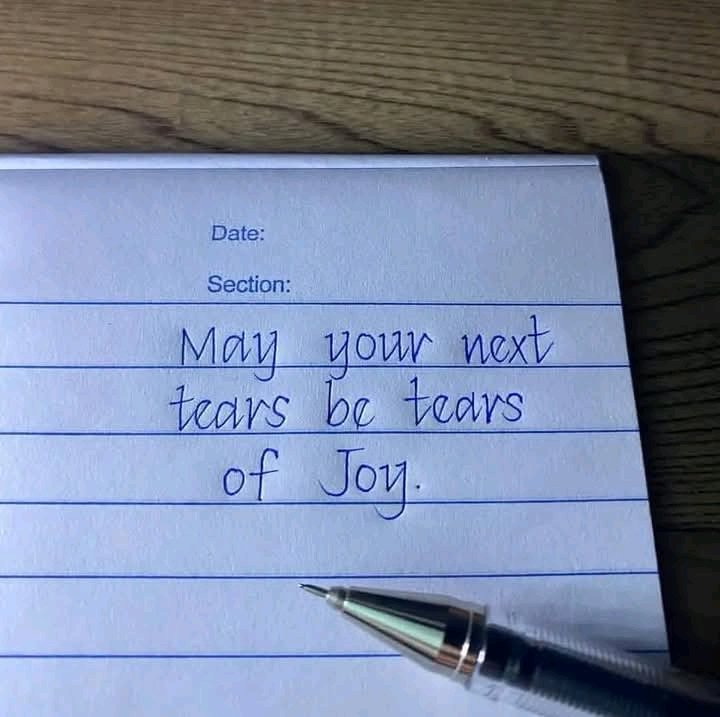 Date:
Section:
May your next
tears be tears
of Joy.